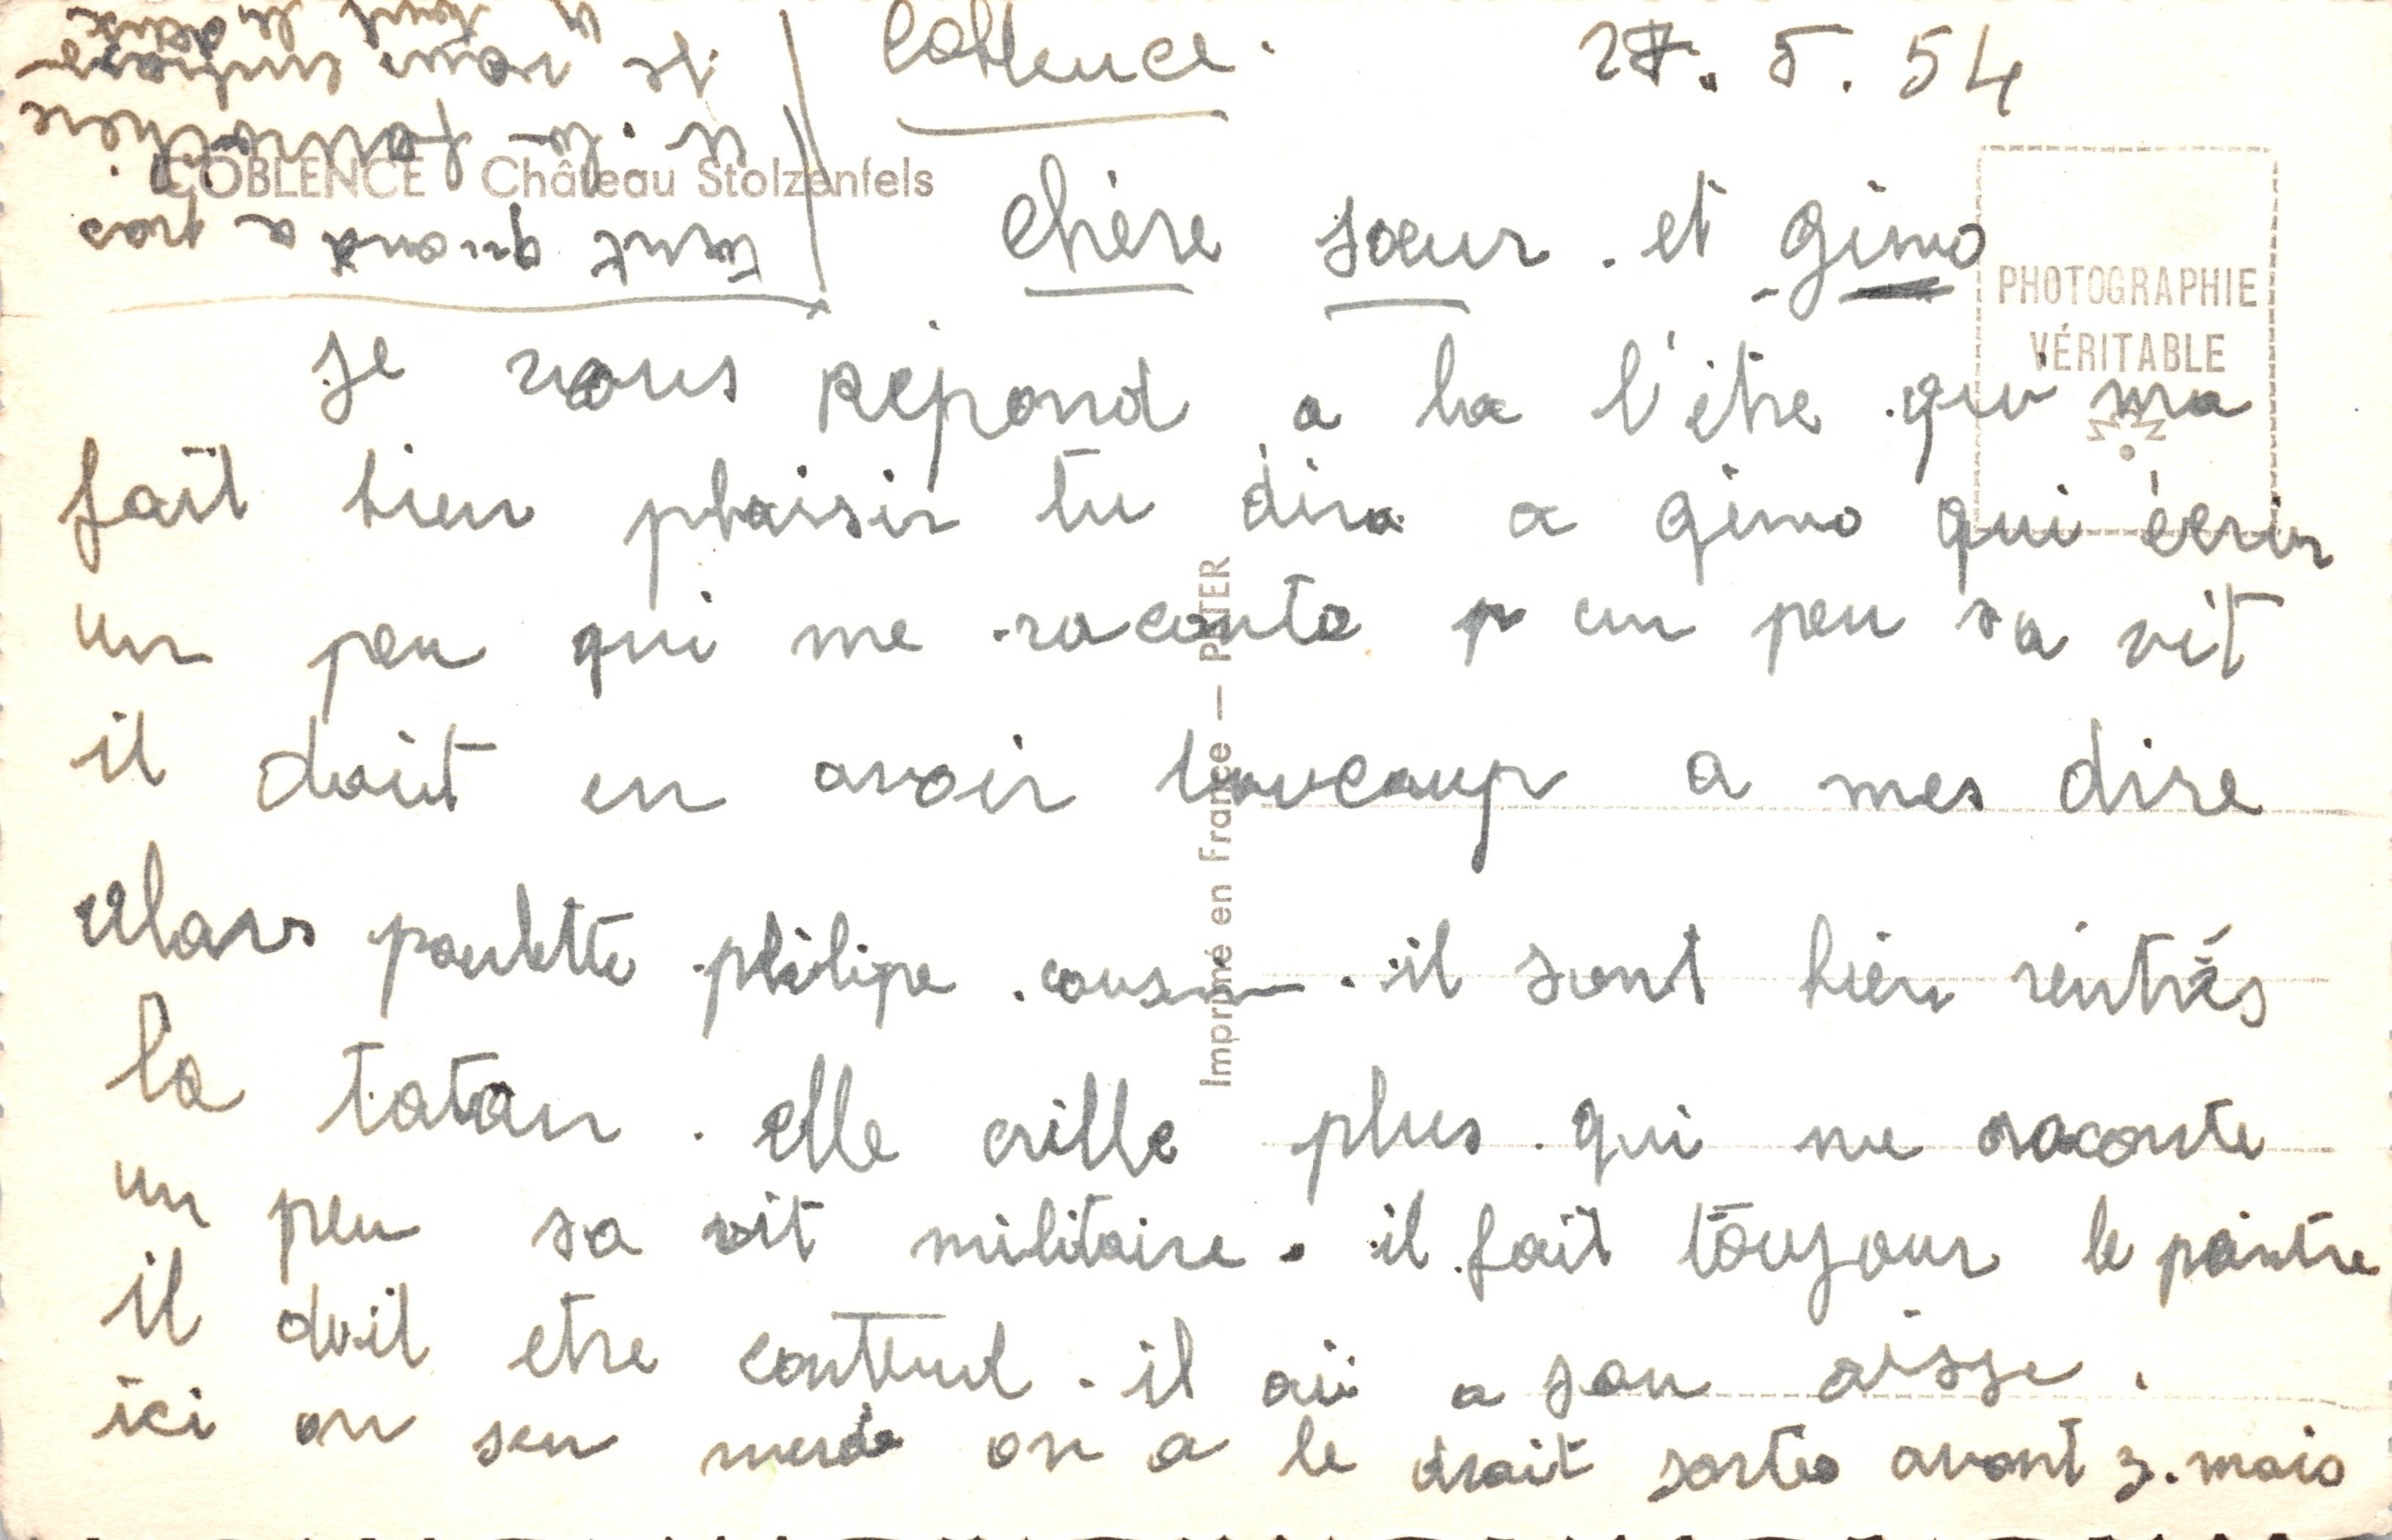 Coblence. 27. 5. 54
COBLENCE - Château Stolzenfels
PHOTOGRAPHIE
VÉRITABLE
chère sœur. et gino
Je vous répond a la l'être qui ma
fait bien plaisir tu dira a gino qui écrir
un peu qui me raconte un peu sa vit
il doit en avoir baucoup a mes dire
alors poulette philipe cousin. il sont bien rentrés
la tatan. elle crille plus. qui me raconte
un peu sa vit militaire. il fait toujour le paintre
il doit etre contend. il ai a son aisse.
ici on sen merde on a le droit sortes avant 3. mois
tent quand a pas
la fourachère
entiore
Imprimé en France — PATER